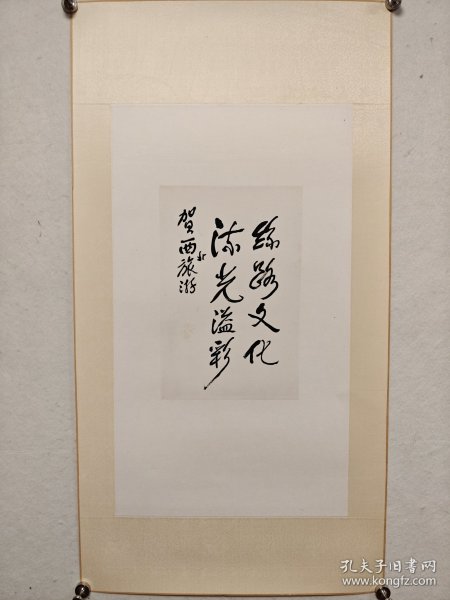 丝路文化
流光溢彩
贺西北旅游
孔夫子旧书网
www.kongfz.com